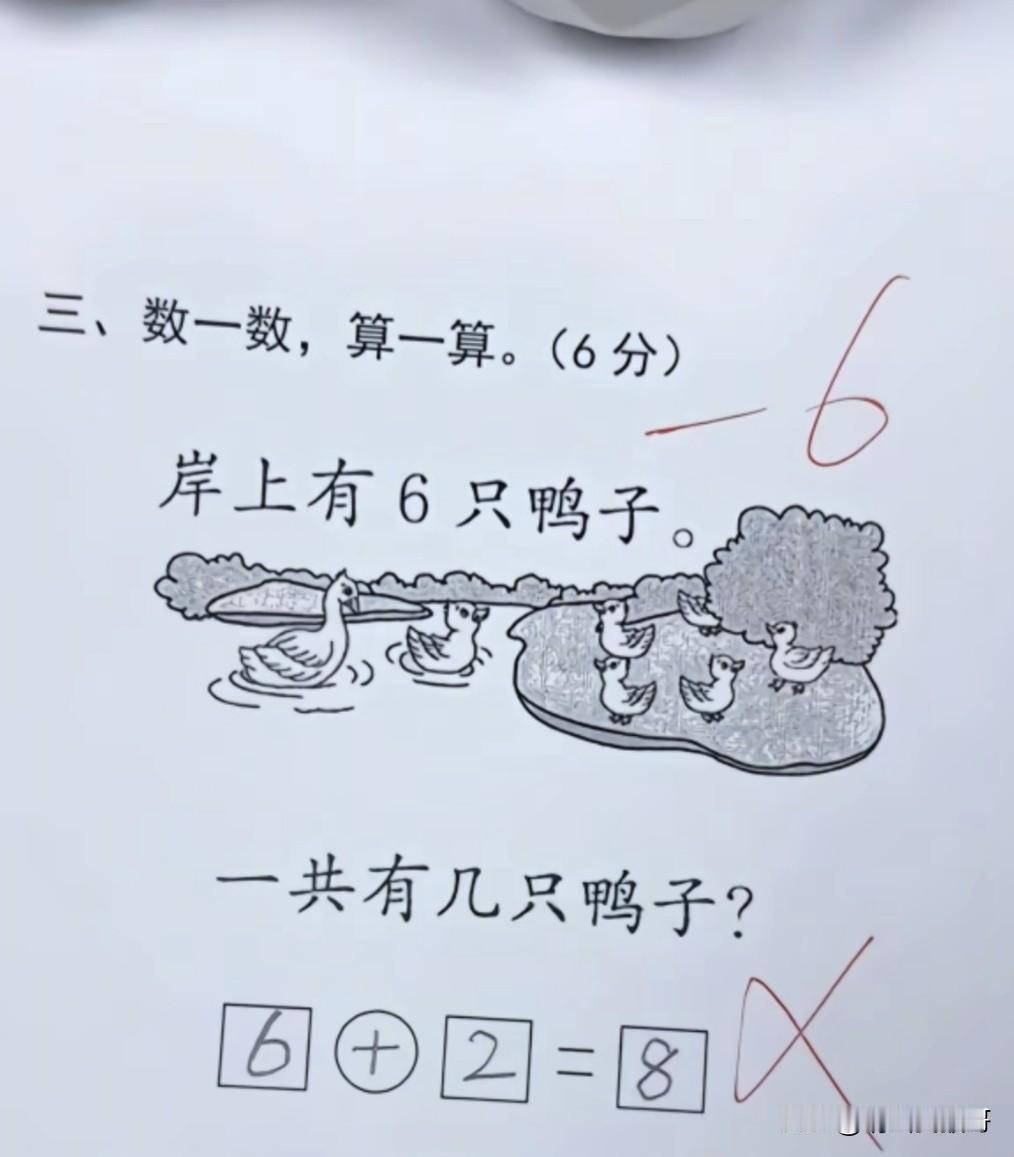 三、数一数，算一算。（6分）
-6
岸上有6只鸭子。
一共有几只鸭子？
6+2=8